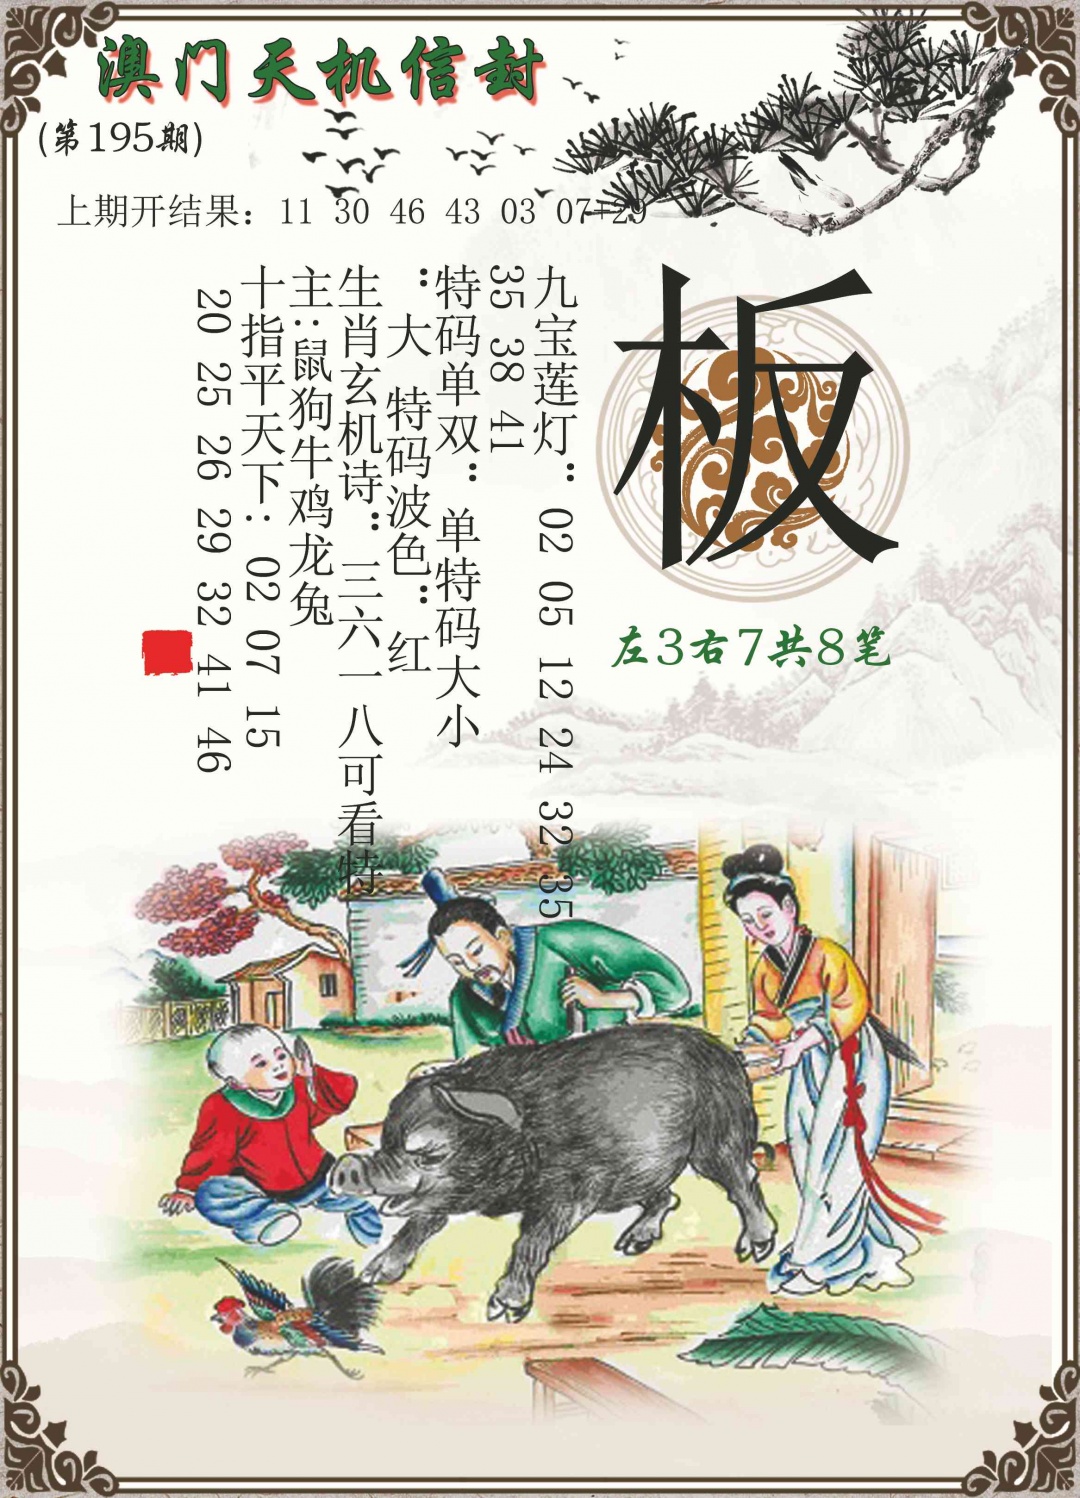 澳门天机信封
(第195期)
上期开结果：11 30 46 43 03 07+29
板
左3右7共8笔
九宝莲灯：02 05 12 24 32 35
35 38 41
特码单双：单特码大小
：大 特码波色：红
生肖玄机诗：三六一八可看特
主:鼠狗牛鸡龙兔
十指平天下：02 07 15
20 25 26 29 32 41 46